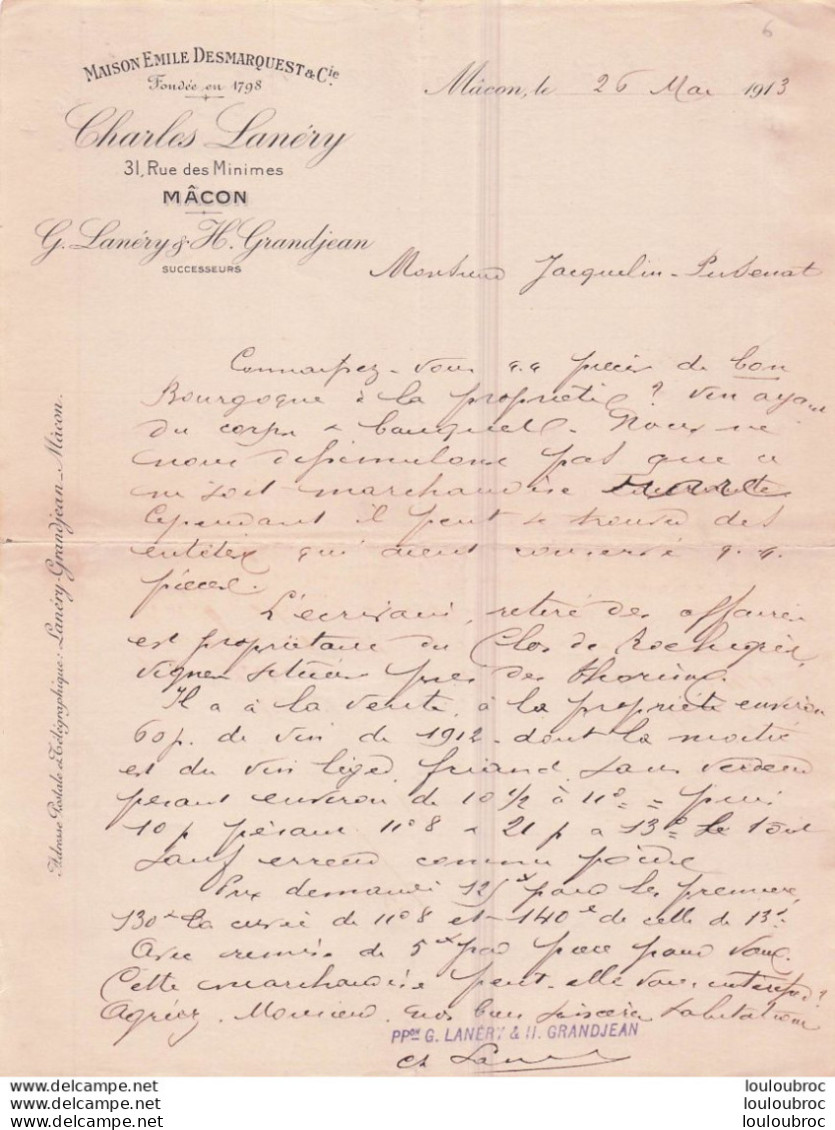 6
MAISON EMILE DESMARQUEST & Cie
Fondée en 1798
Charles Lanéry
31, Rue des Minimes
MÂCON
G. Lanéry & H. Grandjean
SUCCESSEURS
Mâcon, le 26 Mai 1913
Monsieur Jacquelin-
Connaissez-vous q.q. pièces de bon
Bourgogne à la propriété? Vin ayant
du corps & bouquet. Nous ne
nous dissimulons pas que ce
ne soit marchandise rare
Cependant il peut se trouver des
entêtés qui aient conservé q.q.
pièces.
L'écrivain, retiré des affaires
est propriétaire du Clos de
vignes situées près des Thorins.
Il a à la vente, à la propriété environ
60 p. de vin de 1912 dont la moitié
est du vin léger, friand, sans verdeur
pesant environ de 10 1/2 à 11° = puis
10 p pesant 11°8 & 21 p a 13° le tout
sauf erreur comme poids
Prix demandé 125f pour les premiers,
130f la cuvée de 11°8 et 140f de celle de 13°.
Avec remise de 5f par pièce pour vous.
Cette marchandise peut-elle vous intéresser?
Agréez, Monsieur, nos bien sincères salutations
PPon G. LANÉRY & H. GRANDJEAN
Ch Lanéry
Adresse Postale & Télégraphique: Lanéry-Grandjean-Mâcon.
louloubroc
louloubroc
louloubroc